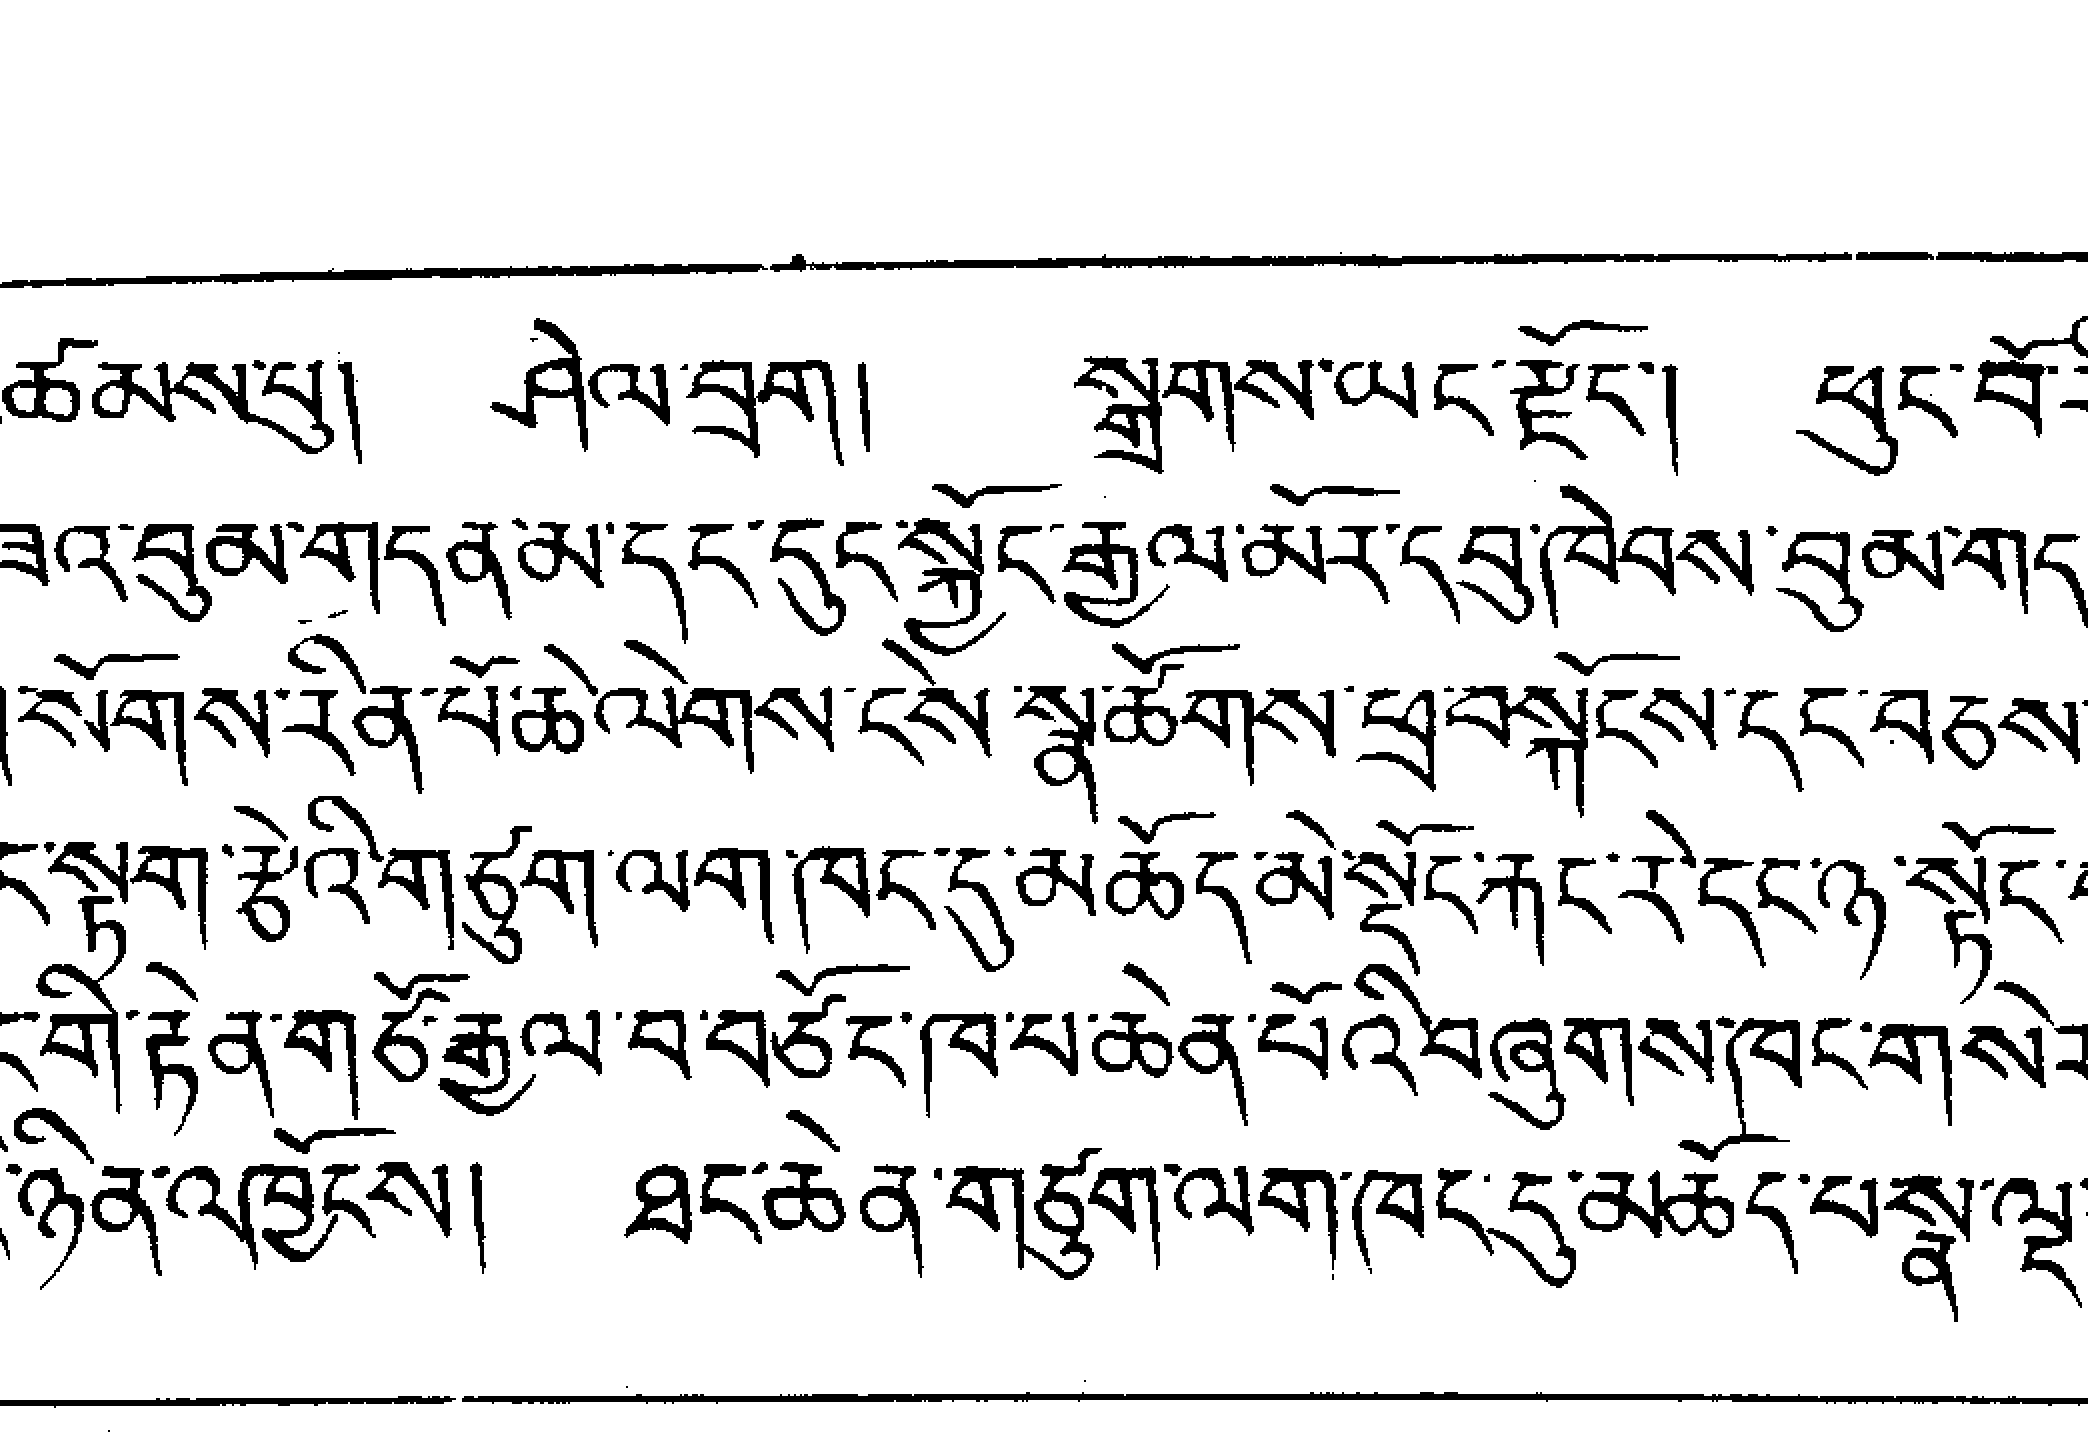 ཚམས་པུ། ཤེལ་བྲག། སྒྲགས་ཡང་རྫོང་། ཕུང་པོ་
ཟའ་བུམ་གདན་མ་དང་དུང་སྐྱོང་རྒྱལ་མོར་དབུ་ཁེབས་བུམ་གད
སོགས་རིན་པོ་ཆེ་ལེགས་ངེས་སྣ་ཚོགས་ཕྲ་བསྐོངས་དང་བཅས་
ང་སྟག་རྩེའི་གཙུག་ལག་ཁང་དུ་མཆོད་མེ་སྡོང་རྐང་རེ་དང་ཉ་སྟོང་
ང་གི་རྟེན་གཙོ་རྒྱལ་བ་བཙོང་ཁ་པ་ཆེན་པོའི་བཞུགས་ཁང་གསེར
ཉིན་འཁྱོངས། ཐང་ཆེན་གཙུག་ལག་ཁང་དུ་མཆོད་པ་སྣ་ལྔ་